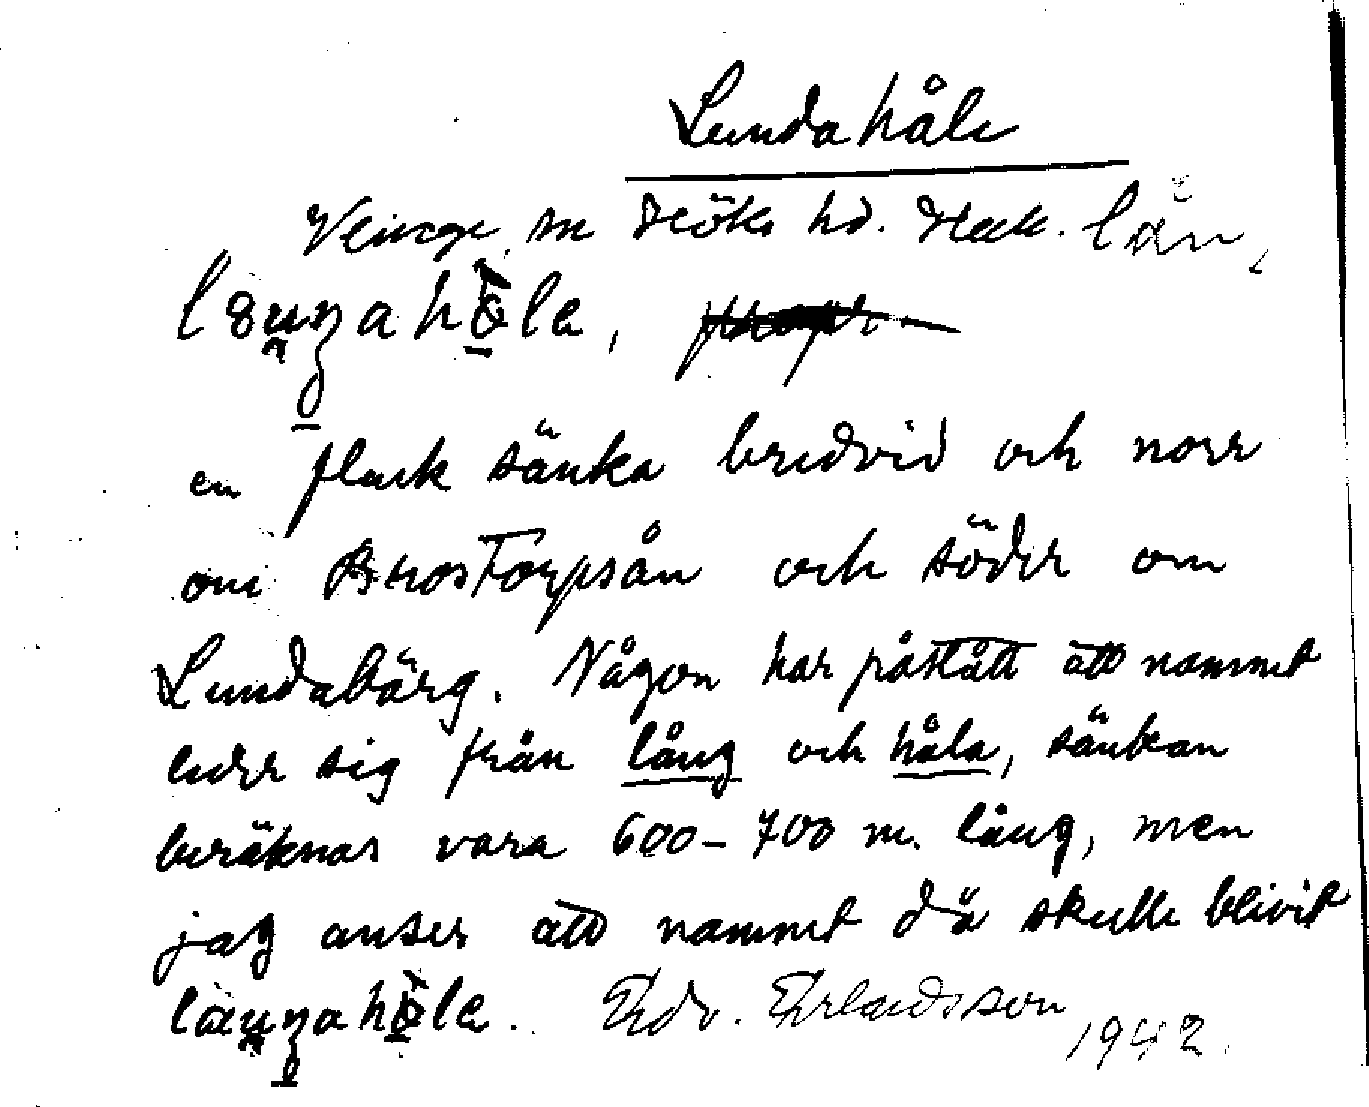 Lundahåle
Veinge sn Höks hd. Hall. län,
en flack sänka bredvid och norr
om Brostorpsån och söder om
Lundabärg. Någon har påstått att namnet
leder sig från lång och håla, sänkan
beräknas vara 600-700 m. lång, men
jag anser att namnet då skulle blivit
Edv. Erlandsson 1942.